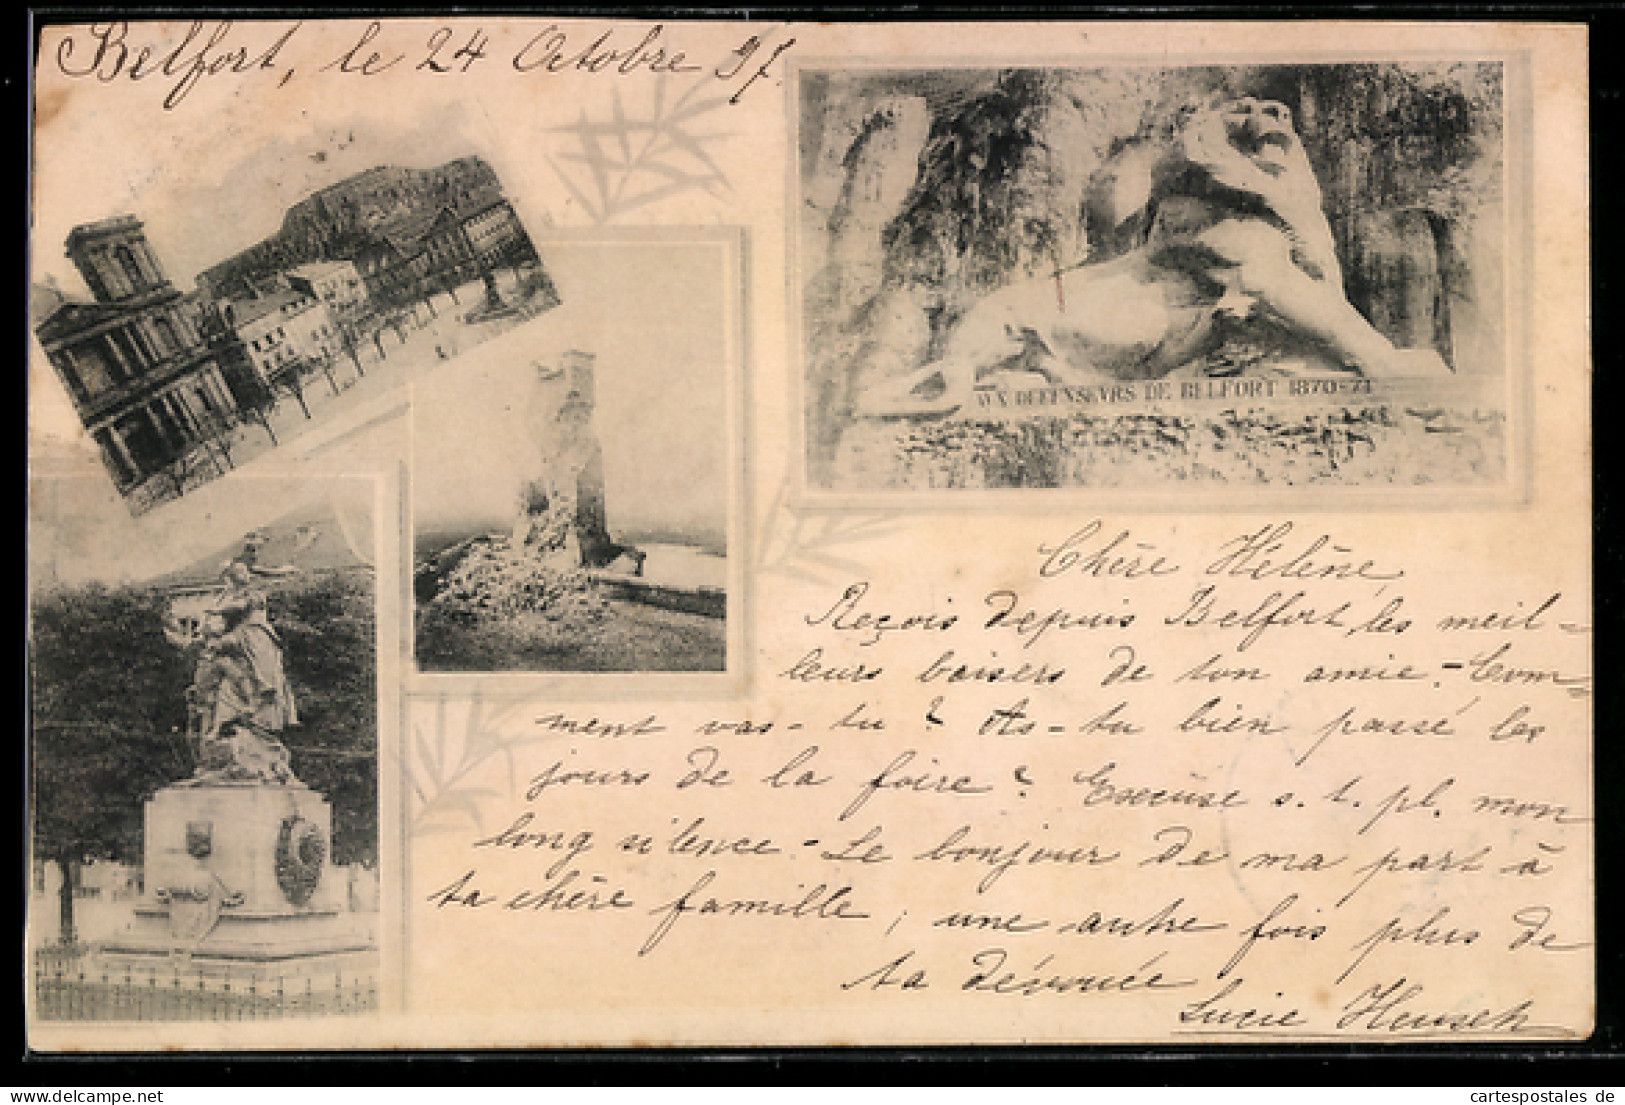 Belfort, le 24 Octobre 97.
AUX DEFENSEVRS DE BELFORT 1870-71
Chère Hélène,
Reçois depuis Belfort, les meil-
leurs baisers de ton amie. - Com-
ment vas-tu ? As-tu bien passé les
jours de la foire ? Excuse s. t. pl. mon
long silence. - Le bonjour de ma part à
ta chère famille ; une autre fois plus de
ta dévouée
Lucie Heusch
cartespostales de